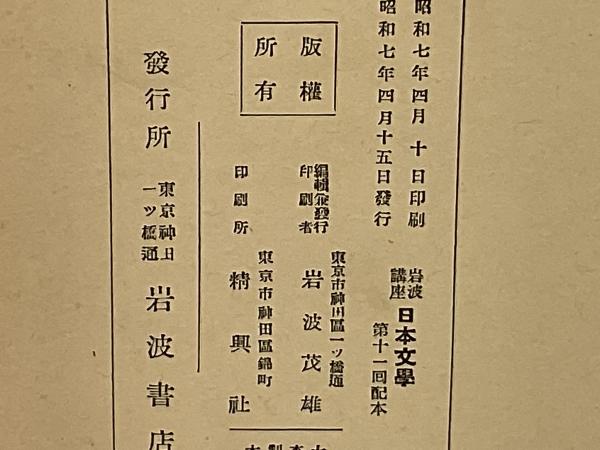 昭和七年四月十日印刷
昭和七年四月十五日發行
岩波
講座
日本文學
第十一回配本
版權
所有
編輯兼發行
印刷者
東京市神田區一ツ橋通
岩波茂雄
印刷所
東京市神田區錦町
精興社
發行所
東京神田
一ツ橋通
岩波書店